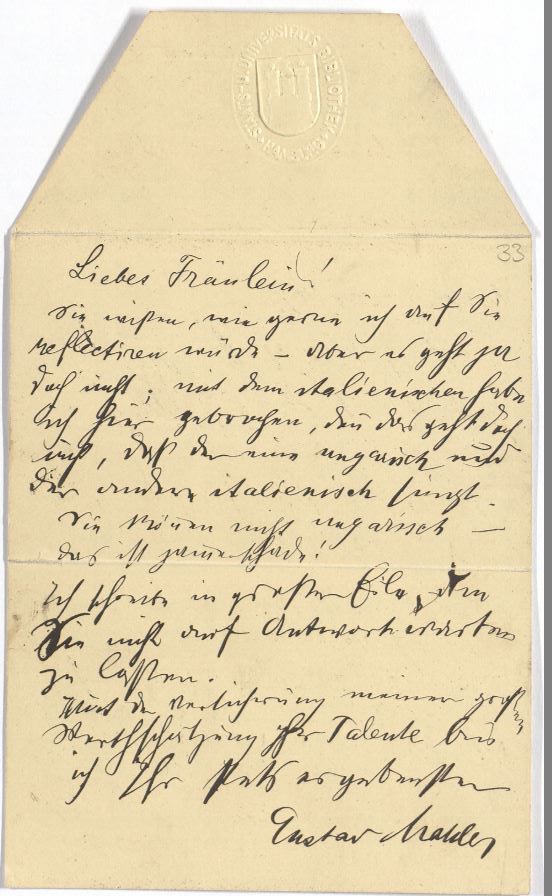 STAATS- U. UNIVERSITÄTS BIBLIOTHEK HAMBURG
33
Liebes Fräulein!
Sie wißen, wie gerne ich auf Sie
reflectiren würde – aber es geht ja
doch nicht; mit dem italienischen habe
ich hier gebrochen, den̄ das geht doch
nicht, daß der eine ungarisch und
der andere italienisch singt.
Sie kön̄en nicht ungarisch –
das ist jam̄erschade!
Ich schreibe in größter Eile, um
Sie nicht auf Antwort warten
zu laßen.
Mit der Versicherung meiner großen
Werthschätzung Ihres Talente bin
ich Ihr stets ergebenster
Gustav Mahler